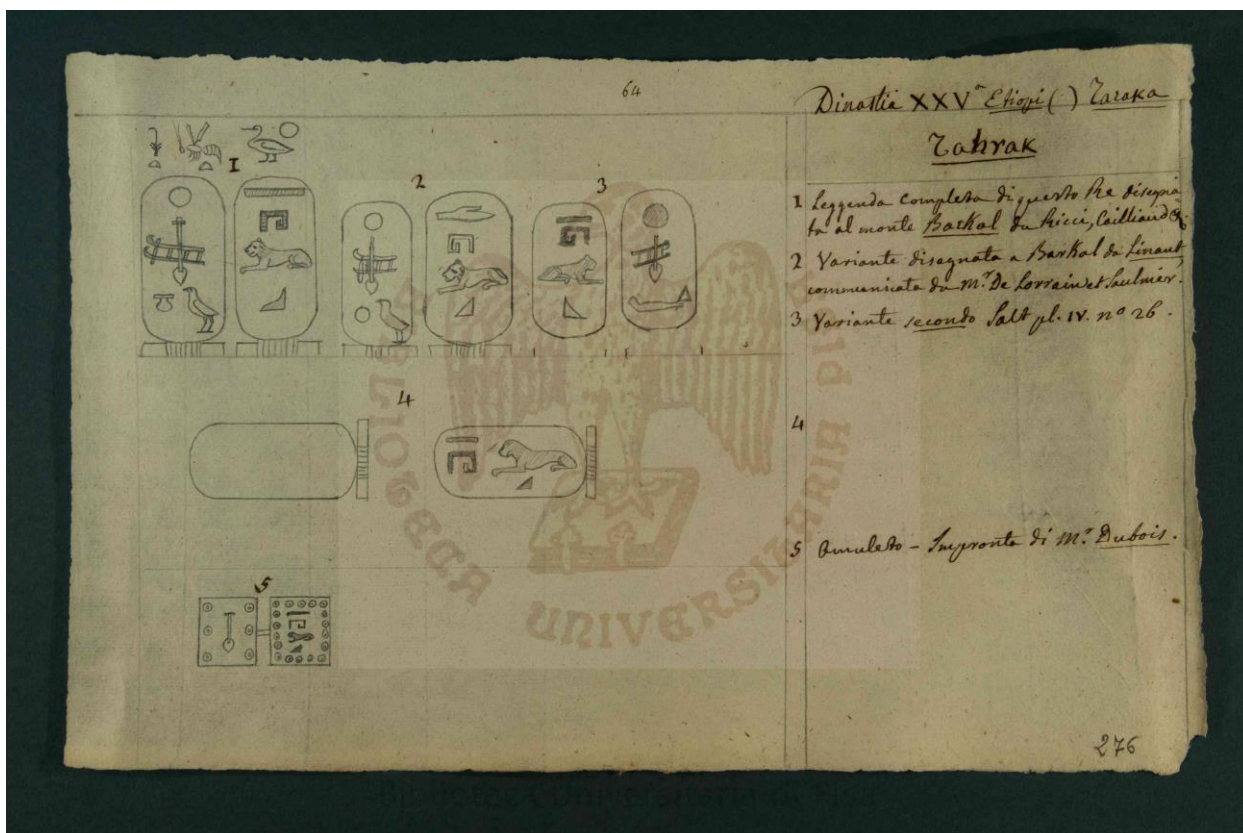 64
Dinastia XXVª Etiopi ( ) Taraka
Tahrak
1 2 3
1 Leggenda completa di questo Re disegna
ta al monte Barkal da Ricci, Cailliaud &.
2 Variante disegnata a Barkal da Linant,
communicata da Mr. De Lorrain et Saulnier.
3 Variante secondo Salt pl. IV. nº 26.
4
4
5 Amuleto - Impronta di Mr. Dubois.
5
276
BIBLIOTECA UNIVERSITARIA PISA
Biblioteca Universitaria di Pisa